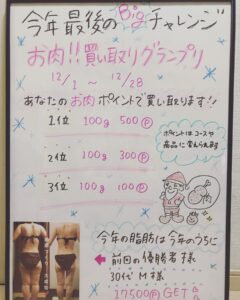 今年最後のBigチャレンジ
お肉!!買い取りグランプリ
12/1 ~ 12/28
あなたのお肉ポイントで買い取ります!!
1位 100g 500Ⓟ
2位 100g 300Ⓟ
3位 100g 100Ⓟ
ポイントはコースや
商品に変えられます
今年の脂肪は今年のうちに
前回の優勝者様
30代 M様
17500Ⓟ GET